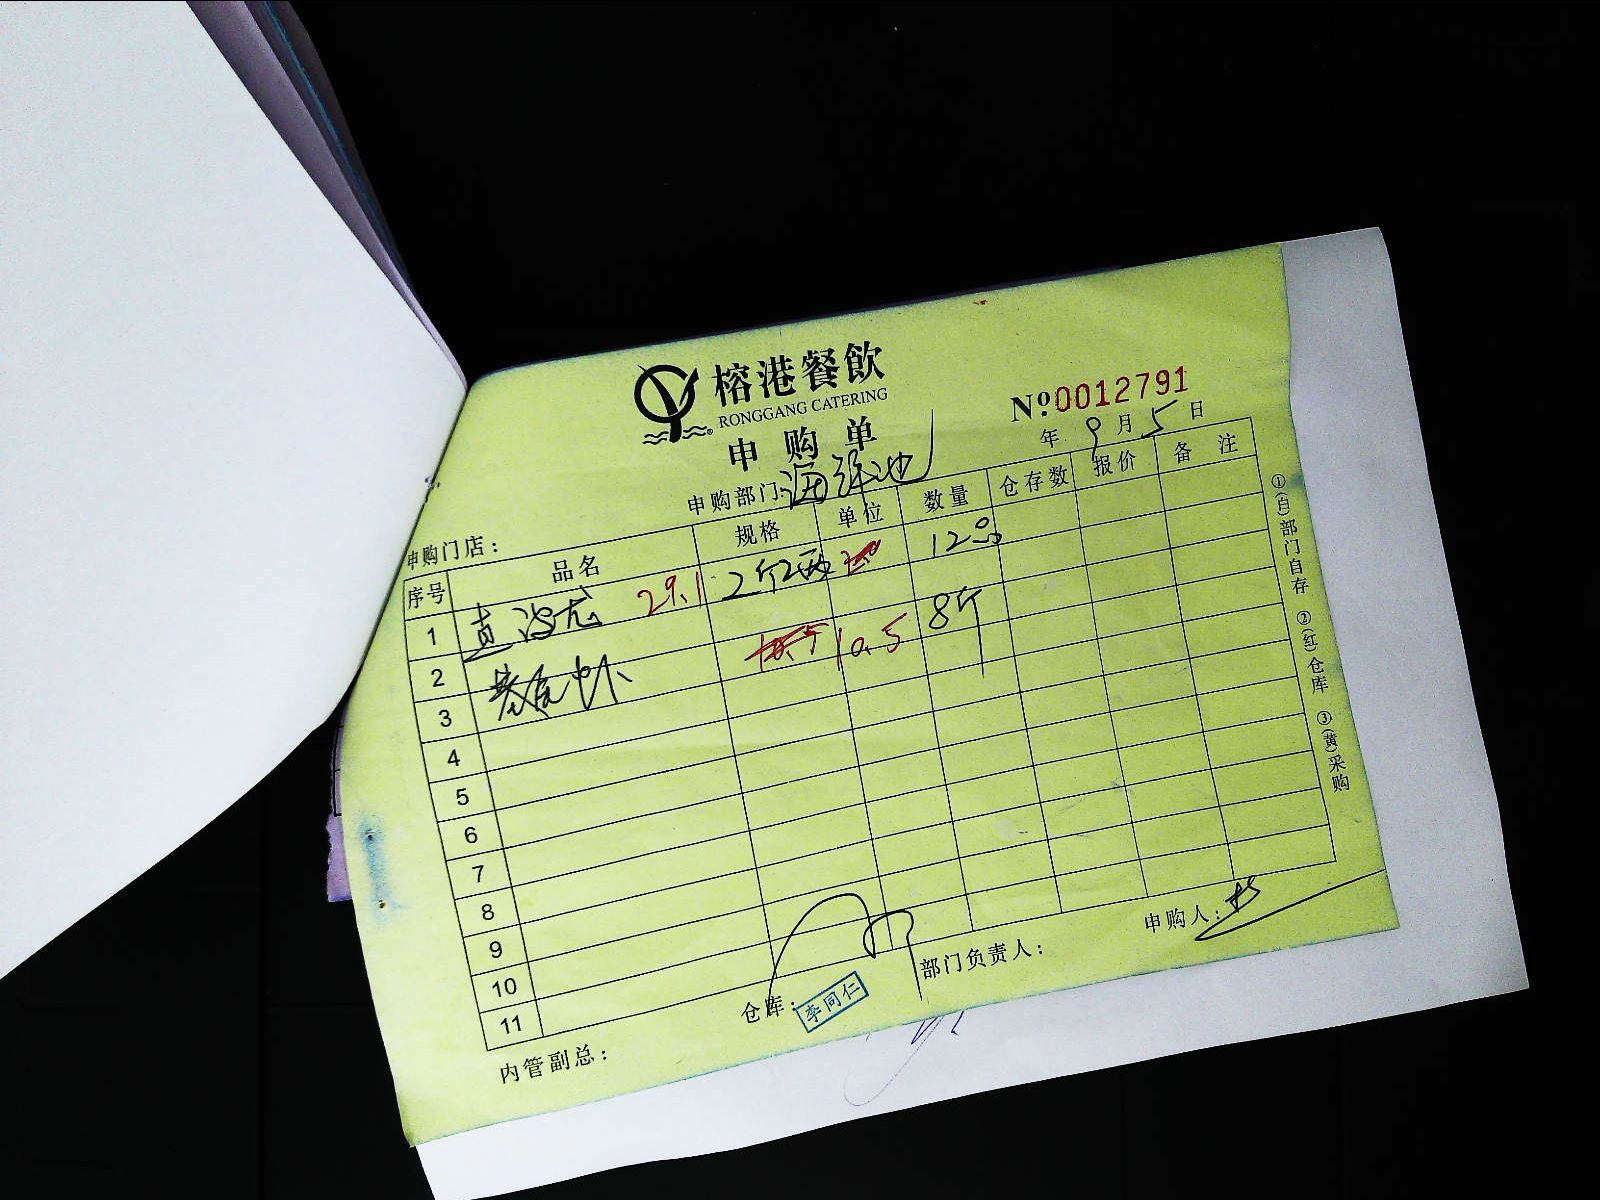 榕港餐飲
RONGGANG CATERING
申购单
No.0012791
年 9月 5日
申购部门:海鲜池
申购门店:
序号 品名 规格 单位 数量 仓存数 报价 备注
1 真波龙 29.1 2斤2两 12只
2 10.5 8斤
3 基尾虾
4
5
6
7
8
9
10
11
①(白)部门自存 ②(红)仓库 ③(黄)采购
仓库: 李同仁
部门负责人:
申购人:
内管副总: